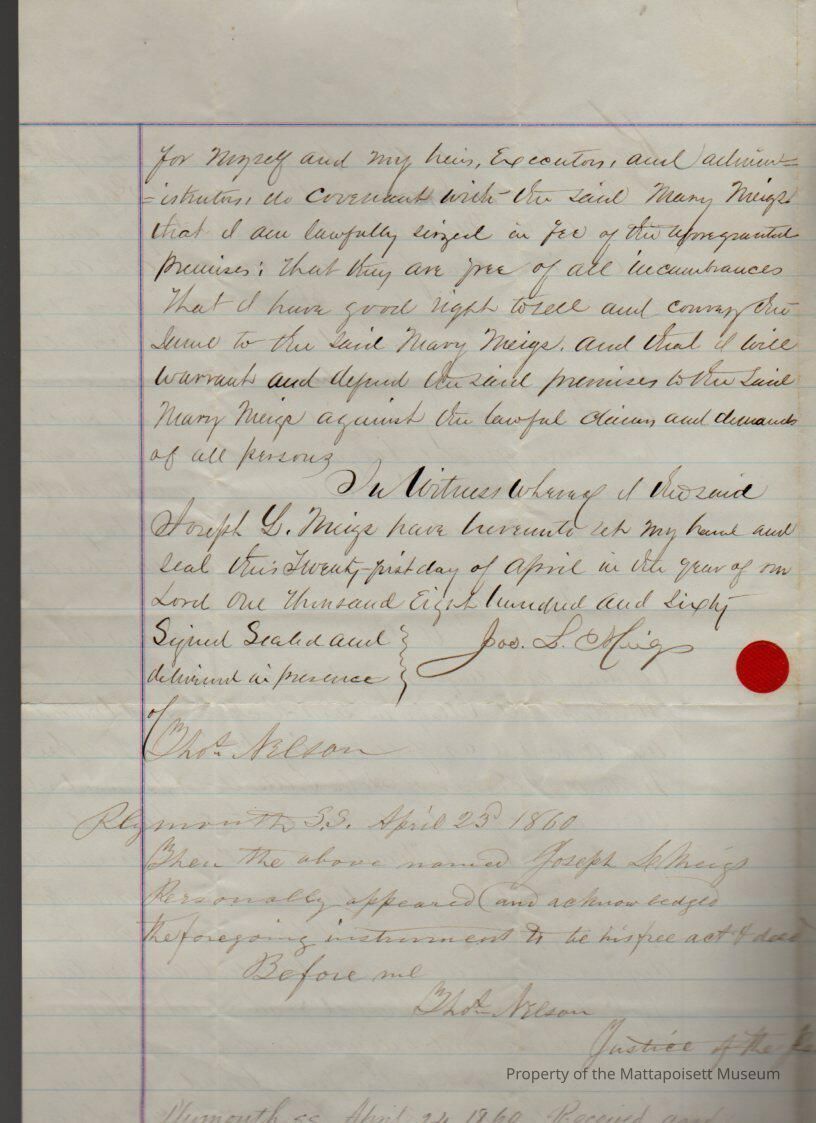 for myself and my heirs, Executors, and admin=
=istrators, do covenant with the said Mary Meigs
that I am lawfully siezed in fee of the aforegranted
premises: that they are free of all incumbrances
That I have good right to sell and convey the
same to the said Mary Meigs. and that I will
warrant and defend the said premises to the said
Mary Meigs against the lawful claims and demands
of all persons
In Witness whereof I the said
Joseph L. Meigs have hereunto set my hand and
seal this Twenty-first day of April in the year of our
Lord One Thousand Eight hundred and sixty
Signed Sealed and
delivered in presence
of
Jos. L. Meigs
Thos. Nelson
Plymouth S.S. April 23d 1860
Then the above named Joseph L Meigs
Personally appeared and acknowledged
the foregoing instrument to be his free act & deed
Before me
Thos. Nelson
Justice of the Pe
Property of the Mattapoisett Museum
Plymouth ss April 24 1860 Received and